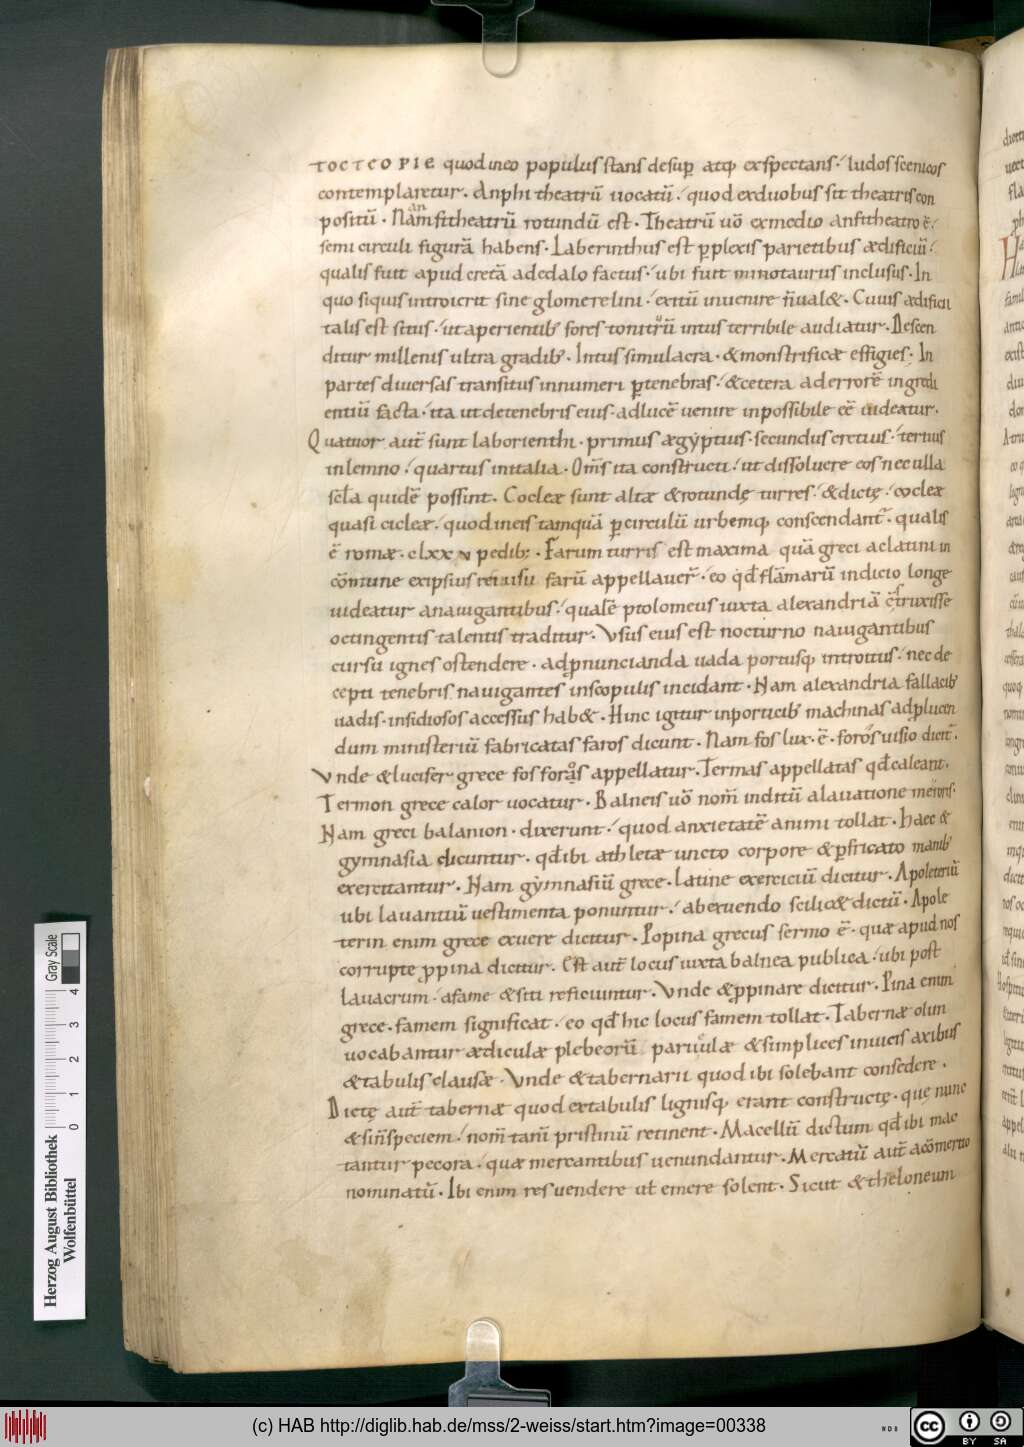 TOCTCOPIE quod in eo populus stans desup̄ atq; exspectans ludos scenicos
contemplaretur. Anphitheatrū uocatū quod exduobus sit theatris con
positū. Nam anfitheatrū rotundū est. Theatrū uō exmedio anfitheatro ē
semicirculi figurā habens. Laberinthus est pplexis parietibus ædificiū
qualis fuit apud cretā adedalo factus ubi fuit minotaurus inclusus. In
quo siquis introierit sine glomere lini exitū inuenire n̄ ual&. Cuius ædificii
talis est situs ut aperientib; fores tonitruū intus terribile audiatur. Descen
ditur millenis ultra gradib;. Intus simulacra &monstrificæ effigies. In
partes diuersas transitus innumeri p̄tenebras &cetera aderrorē ingredi
entiū facta ita ut detenebris eius adlucē uenire inpossibile eē uideatur.
Quatuor aut̄ sunt laborienthi. primus ægyptius secundus cretius tertius
inlemno quartus initalia. Om̄s ita constructi ut dissoluere eos nec ulla
scl̄a quidē possint. Cocleæ sunt altæ &rotundę turres &dictę cocleæ
quasi cicleæ quod in eis tamquā p̄circulū urbemq; conscendant̄. qualis
ē romæ clxx pedib;. Farum turris est maxima quā greci aclatini in
cōmune exipsius rei usu farū appellauer̄ eo qd̄ flāmarū indicio longe
uideatur anauigantibus qualē ptolomeus iuxta alexandriā c̄struxisse
octingentis talentis traditur. Vsus eius est nocturno nauigantibus
cursu ignes ostendere adp̄nuncianda uada portusq; introitus nec de
cepti tenebris nauigantes inscopulis incidant. Nam alexandria fallacib;
uadis insidiosos accessus hab&. Hinc igitur inporticib; machinas adp̄lucen
dum ministeriū fabricatas faros dicunt. Nam fos lux ē foros uisio dicit̄.
Vnde &lucifer grece fosforos appellatur. Termas appellatas qd̄ caleant.
Termon grece calor uocatur. Balneis uō nom̄ inditū alauatione meroris.
Nam greci balanion dixerunt quod anxietatē animi tollat. Haec &
gymnasia dicuntur qd̄ ibi athletæ uncto corpore &p̄fricato manib;
exercitantur. Nam gymnasiū grece latine exerciciū dicitur. Apoleteriū
ubi lauantiū uestimenta ponuntur abexuendo scilic& dictū. Apole
terin enim grece exuere dicitur. Popina grecus sermo ē quæ apud nos
corrupte p̱pina dicitur. Est aut̄ locus iuxta balnea publica ubi post
lauacrum afame &siti reficiuntur. Vnde &p̱pinare dicitur. Pina enim
grece famem significat eo qd̄ hic locus famem tollat. Tabernæ olim
uocabantur ædiculæ plebeorū paruulæ &simplices inuicis axibus
&tabulis clausæ. Vnde &tabernarii quod ibi solebant consedere.
Dictę aut̄ tabernæ quod extabulis lignisq; erant constructę quę nunc
&sin̄ speciem nom̄ tam̄ pristinū retinent. Macellū dictum qd̄ ibi mac
tantur pecora quæ mercantibus uenundantur. Mercatū aut̄ acōmertio
nominatū. Ibi enim res uendere ut emere solent. Sicut &theloneum
Gray Scale
Herzog August Bibliothek
Wolfenbüttel
0 1 2 3 4
(c) HAB http://diglib.hab.de/mss/2-weiss/start.htm?image=00338
cc BY SA